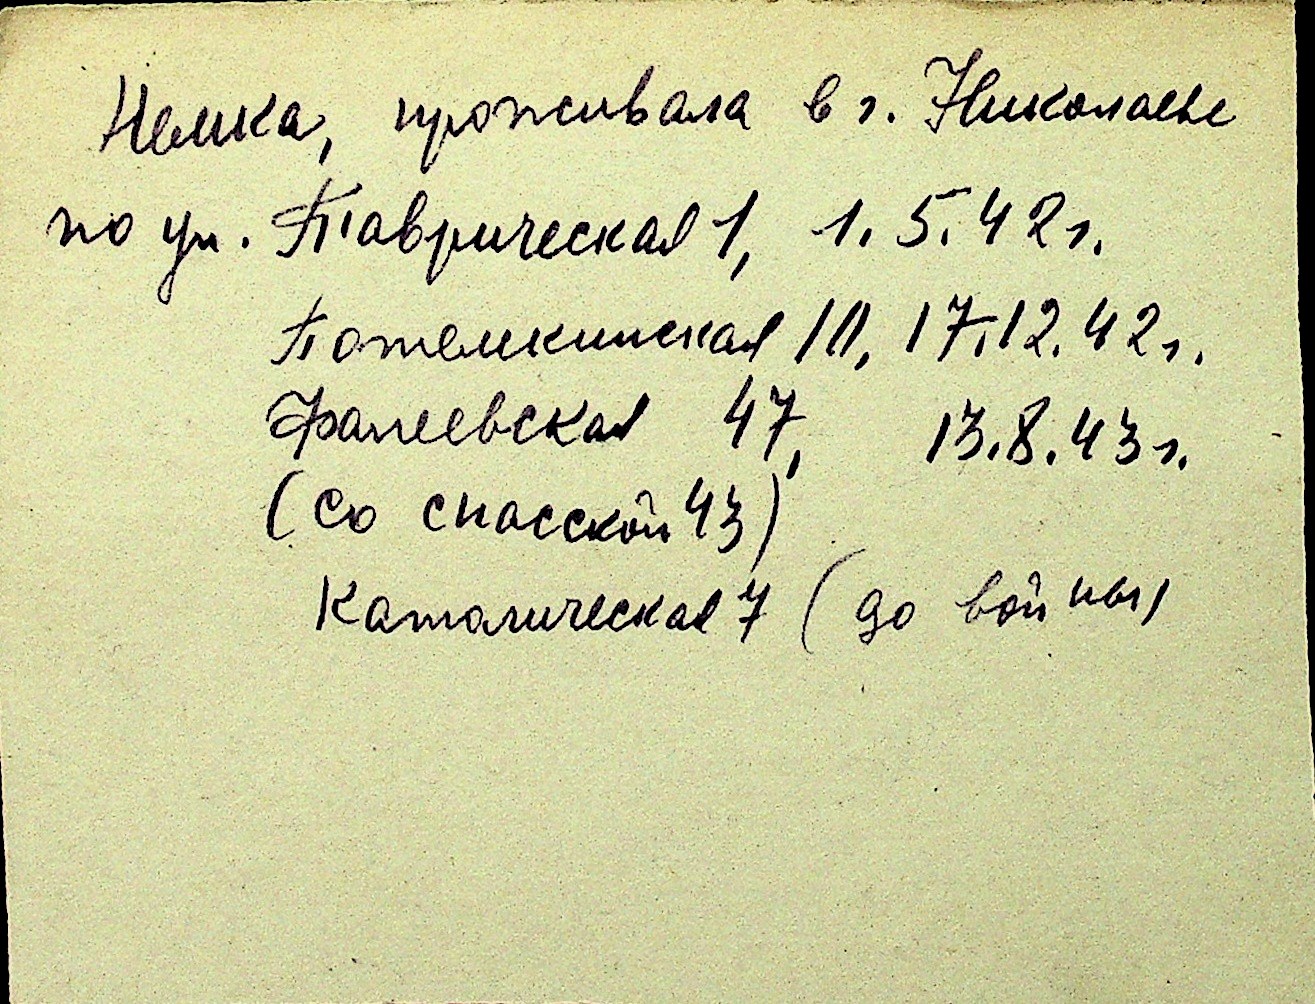 Немка, проживала в г. Николаеве
по ул. Таврическая 1, 1.5.42г.
Потемкинская 10, 17.12.42г.
Фалеевская 47, 13.8.43г.
(со спасской 43)
Католическая 7 (до войны)